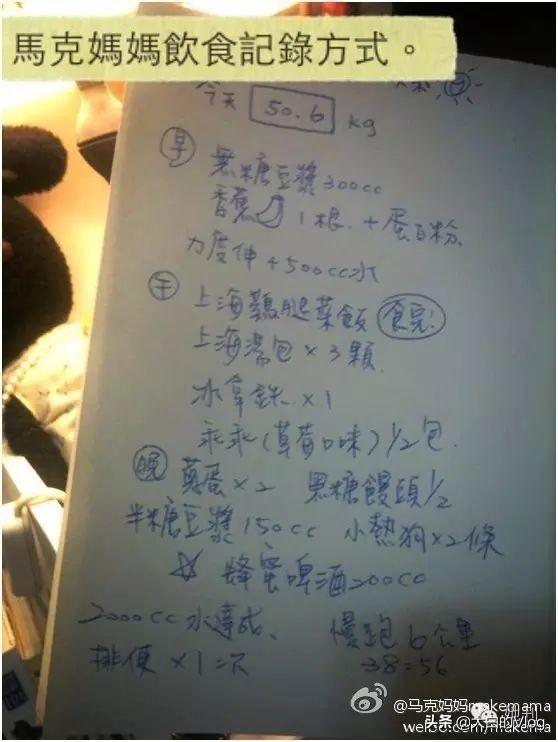 馬克媽媽飲食記錄方式。
今天 50.6 kg
早 無糖豆漿300cc
香蕉 1根 + 蛋白粉
力度伸+500cc水
午 上海雞腿菜飯 食完!
上海湯包×3顆
冰拿鉄×1
乖乖(草莓口味)1/2包.
晚 蛋×2 黑糖饅頭1/2
半糖豆漿150cc 小熱狗×2條
☆ 蜂蜜啤酒200cc
2000cc水達成、 慢跑6公里
排便×1次 38:56
@马克妈妈makemama
头条 @大白的vlog
weibo.com/makema